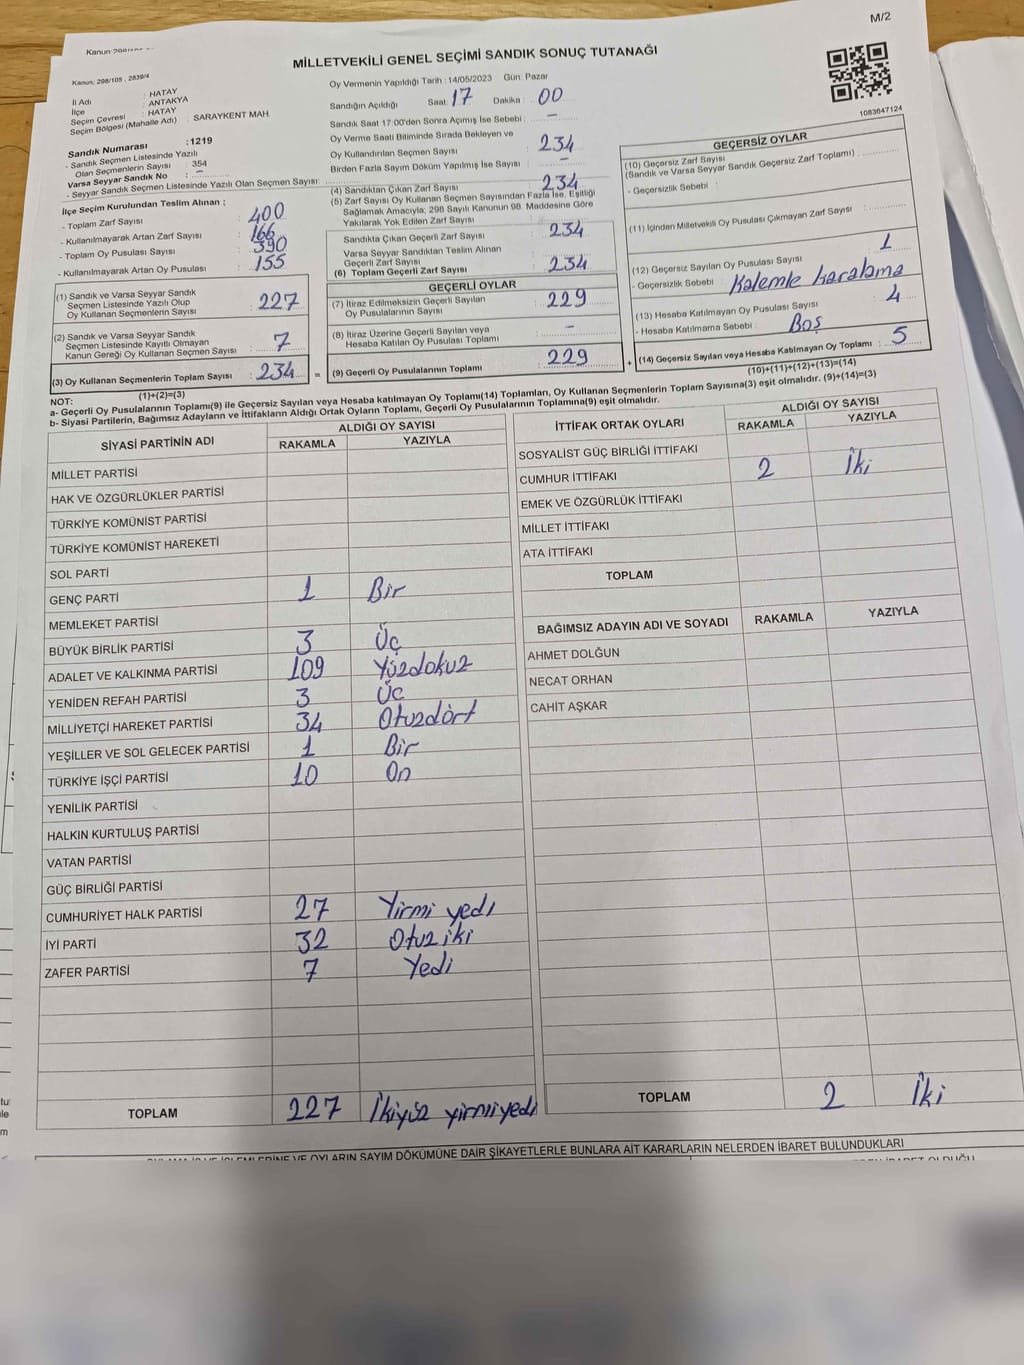 M/2
MİLLETVEKİLİ GENEL SEÇİMİ SANDIK SONUÇ TUTANAĞI
Kanun: 298/105 , 2839/4
İl Adı : HATAY
İlçe : ANTAKYA
Seçim Çevresi : HATAY
Seçim Bölgesi (Mahalle Adı) : SARAYKENT MAH
Sandık Numarası :1219
- Sandık Seçmen Listesinde Yazılı
Olan Seçmenlerin Sayısı : 354
Varsa Seyyar Sandık No : –
- Seyyar Sandık Seçmen Listesinde Yazılı Olan Seçmen Sayısı:
İlçe Seçim Kurulundan Teslim Alınan ;
- Toplam Zarf Sayısı : 400
- Kullanılmayarak Artan Zarf Sayısı : 166
- Toplam Oy Pusulası Sayısı : 390
- Kullanılmayarak Artan Oy Pusulası : 155
(1) Sandık ve Varsa Seyyar Sandık
Seçmen Listesinde Yazılı Olup
Oy Kullanan Seçmenlerin Sayısı : 227
(2) Sandık ve Varsa Seyyar Sandık
Seçmen Listesinde Kayıtlı Olmayan
Kanun Gereği Oy Kullanan Seçmen Sayısı : 7
(3) Oy Kullanan Seçmenlerin Toplam Sayısı : 234 =
(1)+(2)=(3)
Oy Vermenin Yapıldığı Tarih : 14/05/2023 Gün: Pazar
Sandığın Açıldığı Saat: 17 Dakika : 00
Sandık Saat 17:00'den Sonra Açımış İse Sebebi : –
Oy Verme Saati Bitiminde Sırada Bekleyen ve
Oy Kullandırılan Seçmen Sayısı : 234
Birden Fazla Sayım Döküm Yapılmış İse Sayısı : –
(4) Sandıktan Çıkan Zarf Sayısı : 234
(5) Zarf Sayısı Oy Kullanan Seçmen Sayısından Fazla İse, Eşitliği
Sağlamak Amacıyla; 298 Sayılı Kanunun 98. Maddesine Göre
Yakılarak Yok Edilen Zarf Sayısı :
Sandıkta Çıkan Geçerli Zarf Sayısı : 234
Varsa Seyyar Sandıktan Teslim Alınan
Geçerli Zarf Sayısı :
(6) Toplam Geçerli Zarf Sayısı : 234
GEÇERLİ OYLAR
(7) İtiraz Edilmeksizin Geçerli Sayılan
Oy Pusulalarının Sayısı : 229
(8) İtiraz Üzerine Geçerli Sayılan veya
Hesaba Katılan Oy Pusulası Toplamı : –
(9) Geçerli Oy Pusulalarının Toplamı : 229 +
1083647124
GEÇERSİZ OYLAR
(10) Geçersiz Zarf Sayısı
(Sandık ve Varsa Seyyar Sandık Geçersiz Zarf Toplamı) :
- Geçersizlik Sebebi :
(11) İçinden Milletvekili Oy Pusulası Çıkmayan Zarf Sayısı :
(12) Geçersiz Sayılan Oy Pusulası Sayısı : 1
- Geçersizlik Sebebi : Kalemle karalama
(13) Hesaba Katılmayan Oy Pusulası Sayısı : 4
- Hesaba Katılmama Sebebi : Boş
(14) Geçersiz Sayılan veya Hesaba Katılmayan Oy Toplamı : 5
(10)+(11)+(12)+(13)=(14)
NOT:
a- Geçerli Oy Pusulalarının Toplamı(9) ile Geçersiz Sayılan veya Hesaba katılmayan Oy Toplamı(14) Toplamları, Oy Kullanan Seçmenlerin Toplam Sayısına(3) eşit olmalıdır. (9)+(14)=(3)
b- Siyasi Partilerin, Bağımsız Adayların ve İttifakların Aldığı Ortak Oyların Toplamı, Geçerli Oy Pusulalarının Toplamına(9) eşit olmalıdır.
SİYASİ PARTİNİN ADI ALDIĞI OY SAYISI
RAKAMLA YAZIYLA
MİLLET PARTİSİ
HAK VE ÖZGÜRLÜKLER PARTİSİ
TÜRKİYE KOMÜNİST PARTİSİ
TÜRKİYE KOMÜNİST HAREKETİ
SOL PARTİ
GENÇ PARTİ 1 Bir
MEMLEKET PARTİSİ
BÜYÜK BİRLİK PARTİSİ 3 Üç
ADALET VE KALKINMA PARTİSİ 109 Yüzdokuz
YENİDEN REFAH PARTİSİ 3 Üç
MİLLİYETÇİ HAREKET PARTİSİ 34 Otuzdört
YEŞİLLER VE SOL GELECEK PARTİSİ 1 Bir
TÜRKİYE İŞÇİ PARTİSİ 10 On
YENİLİK PARTİSİ
HALKIN KURTULUŞ PARTİSİ
VATAN PARTİSİ
GÜÇ BİRLİĞİ PARTİSİ
CUMHURİYET HALK PARTİSİ 27 Yirmi yedi
İYİ PARTİ 32 Otuz iki
ZAFER PARTİSİ 7 Yedi
TOPLAM 227 İkiyüz yirmiyedi
İTTİFAK ORTAK OYLARI ALDIĞI OY SAYISI
RAKAMLA YAZIYLA
SOSYALİST GÜÇ BİRLİĞİ İTTİFAKI
CUMHUR İTTİFAKI 2 İki
EMEK VE ÖZGÜRLÜK İTTİFAKI
MİLLET İTTİFAKI
ATA İTTİFAKI
TOPLAM
BAĞIMSIZ ADAYIN ADI VE SOYADI RAKAMLA YAZIYLA
AHMET DOLĞUN
NECAT ORHAN
CAHİT AŞKAR
TOPLAM 2 İki
OYLARIN SAYIM DÖKÜMÜNE DAİR ŞİKAYETLERLE BUNLARA AİT KARARLARIN NELERDEN İBARET BULUNDUKLARI